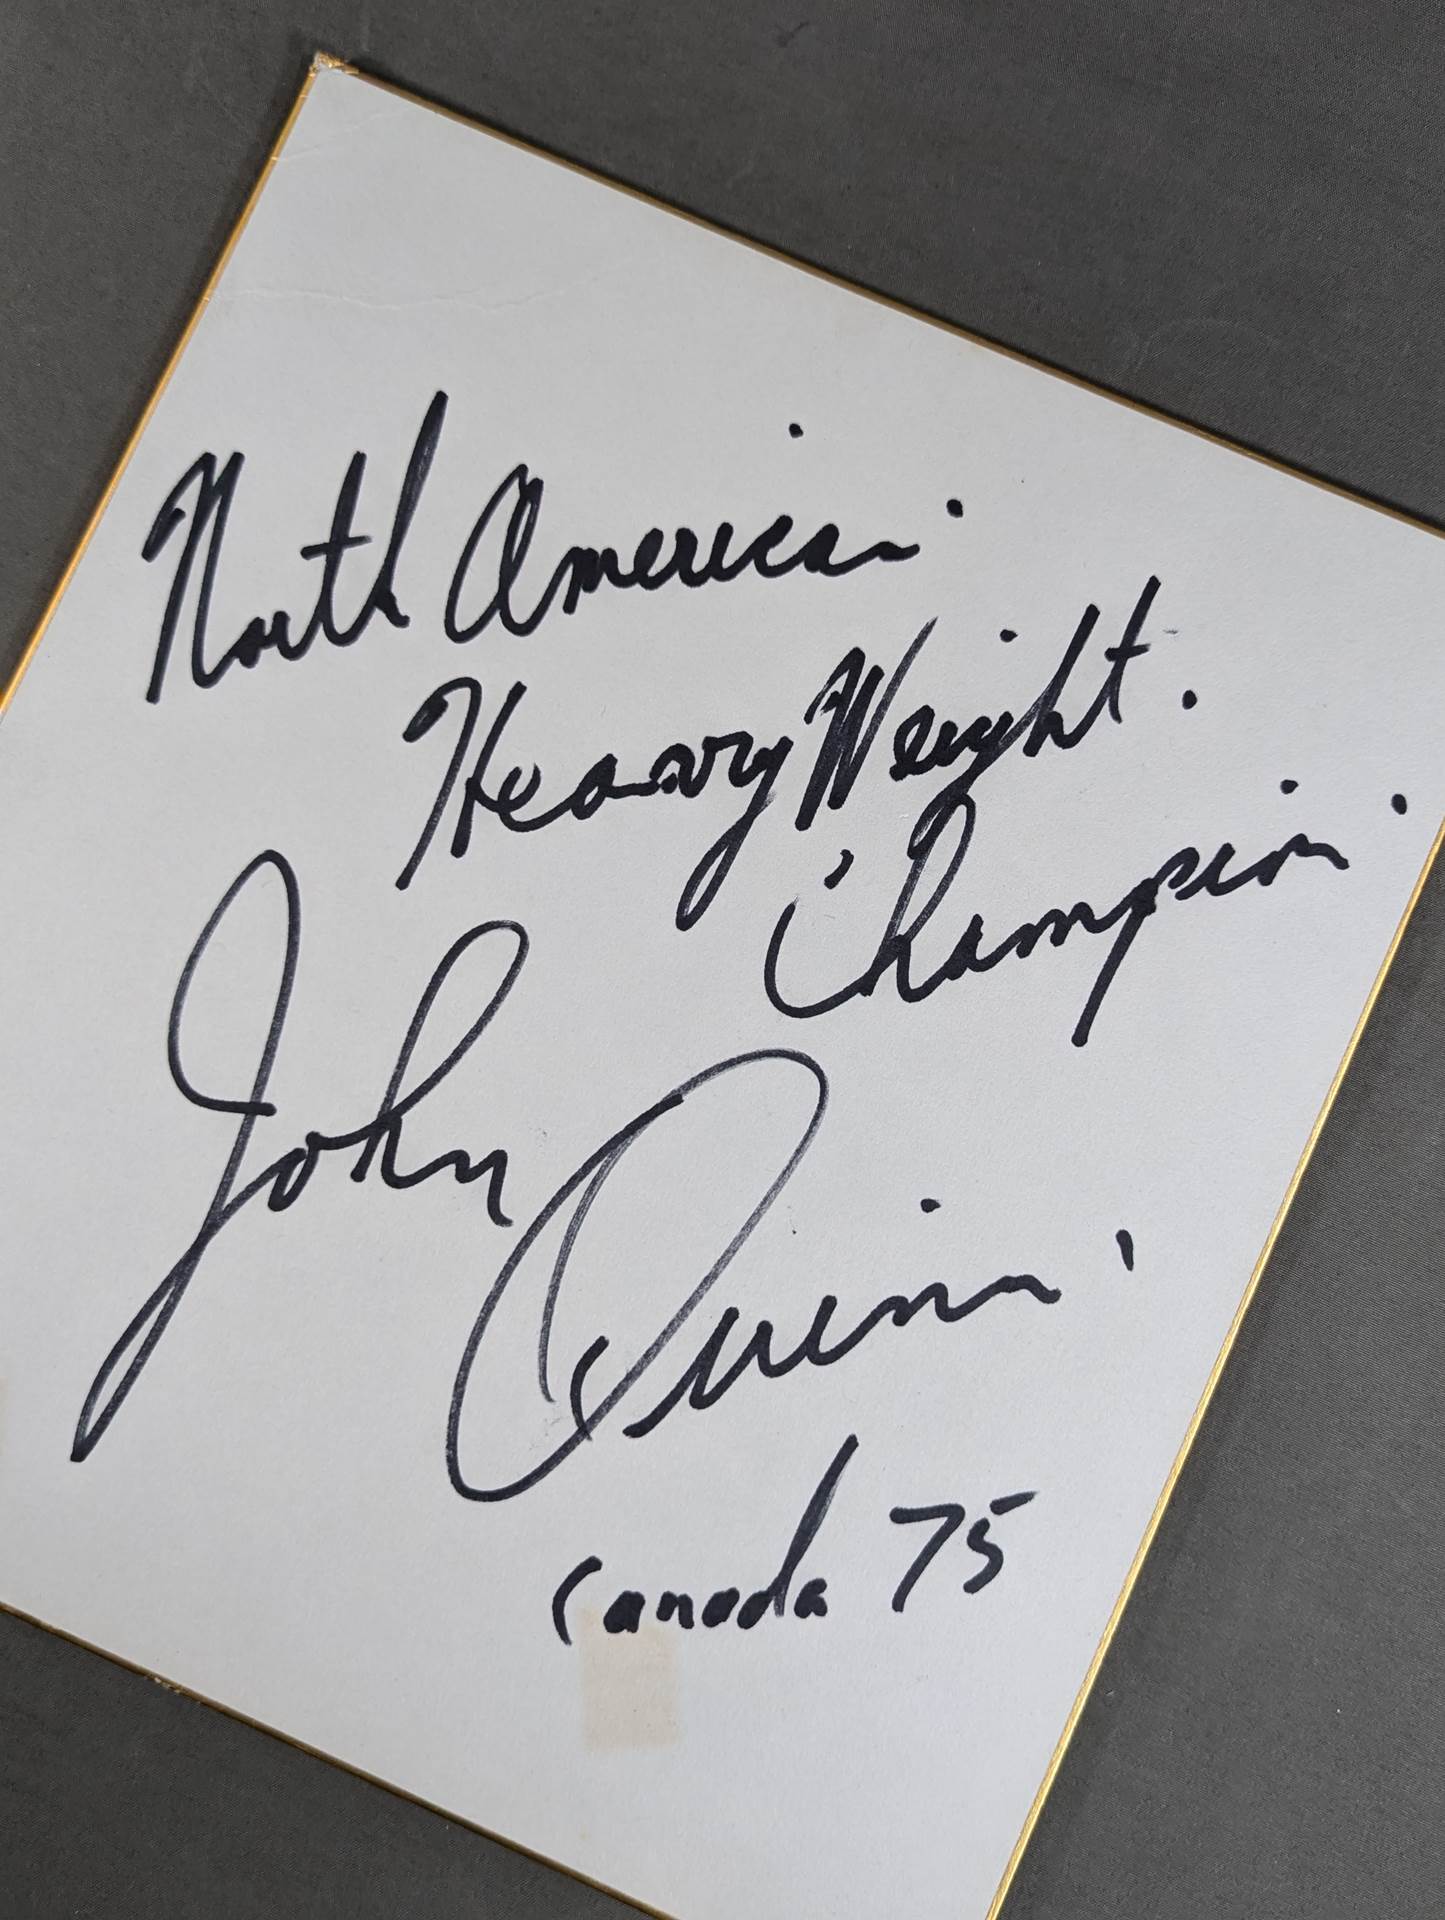 North American.
Heavy Weight.
Champion.
John Quinn.
Canada 75